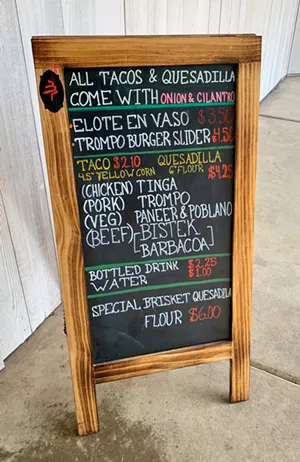 ALL TACOS & QUESADILLA
COME WITH ONION & CILANTRO
ELOTE EN VASO $3.50
TROMPO BURGER SLIDER $4.50
TACO $2.10 QUESADILLA
4.5" YELLOW CORN 6" FLOUR $4.25
(CHICKEN) TINGA
(PORK) TROMPO
(VEG) PANEER & POBLANO
(BEEF) [BISTEK
[BARBACOA]
BOTTLED DRINK $2.25
WATER $1.00
SPECIAL BRISKET QUESADILLA
FLOUR $6.00